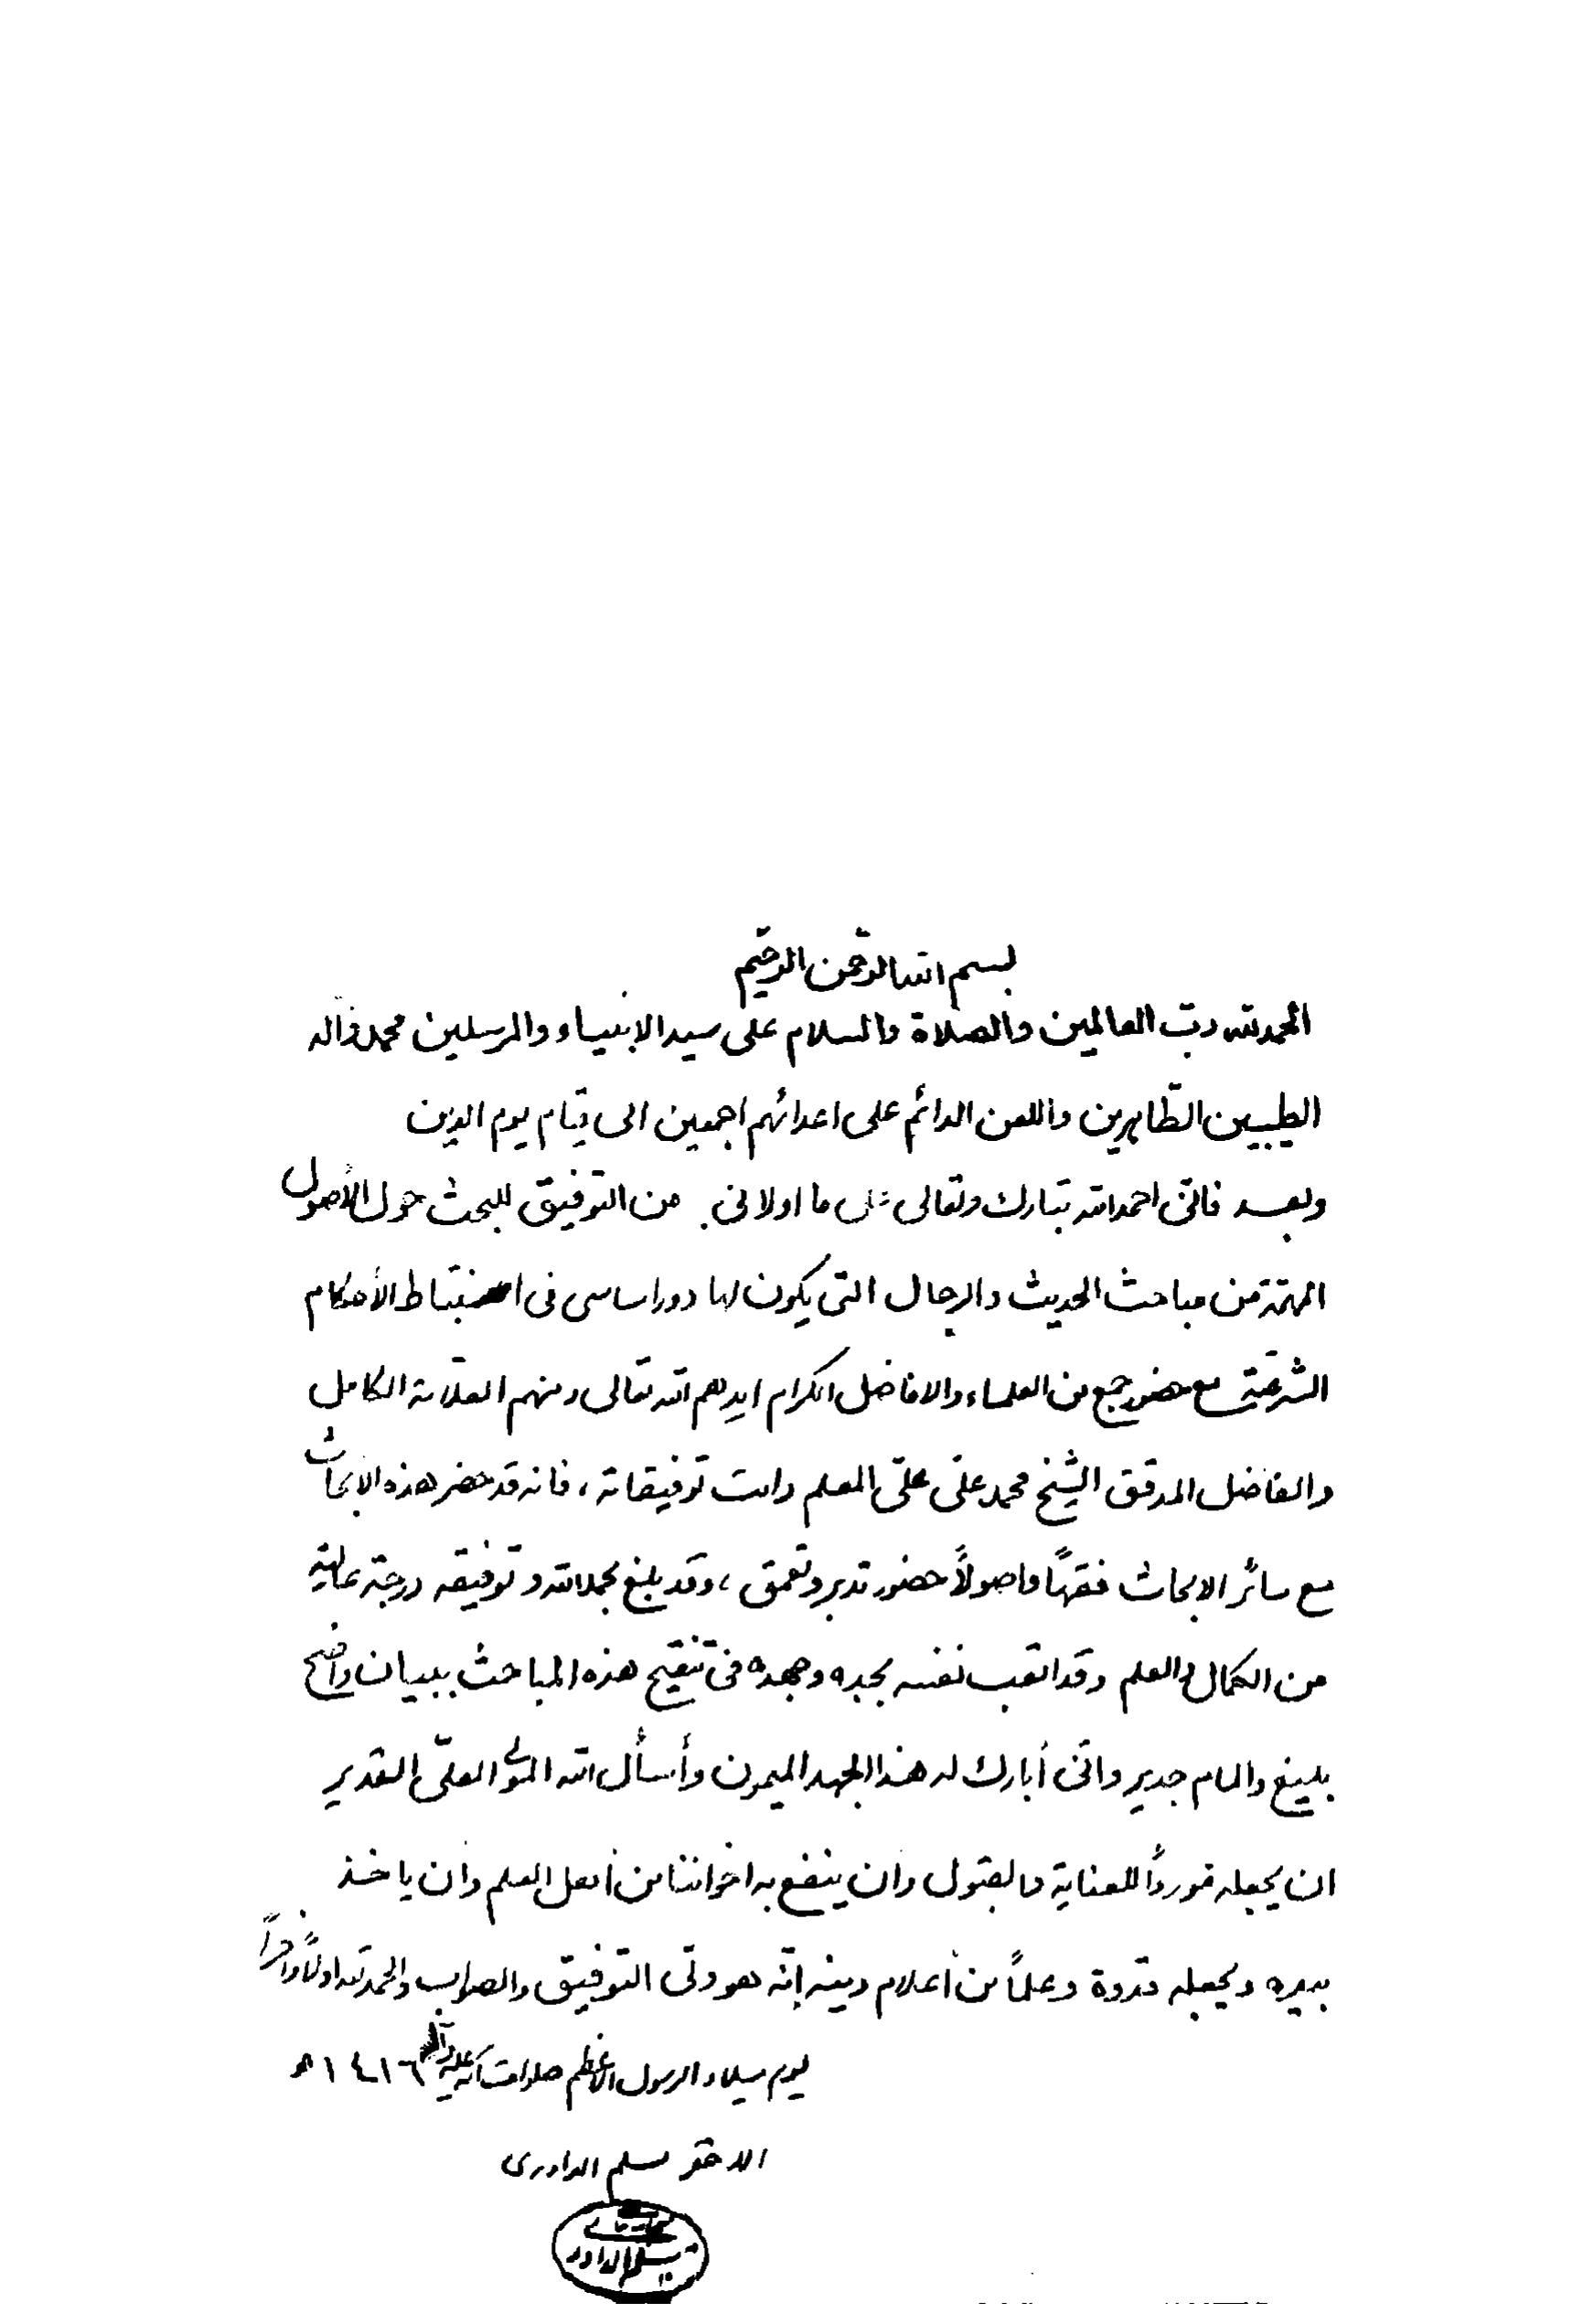 بسم الله الرحمن الرحيم
الحمد لله ربّ العالمين والصلاة والسلام على سيد الانبياء والمرسلين محمد وآله
الطيبين الطّاهرين واللعن الدائم على اعدائهم اجمعين الى قيام يوم الدين
وبعد فانّى احمد الله تبارك وتعالى على ما اولانى من التوفيق للبحث حول الأصول
المهمّة من مباحث الحديث والرجال التى يكون لها دور اساسى فى استنباط الأحكام
الشرعيّة مع حضور جمع من العلماء والافاضل الكرام ايدهم الله تعالى ومنهم العلّامة الكامل
والفاضل المدقق الشيخ محمد علىّ علىّ المعلم دامت توفيقاته ، فانه قد حضر هذه الابحاث
مع سائر الابحاث فقهاً واصولاً حضور تدبر وتعمق ، وقد بلغ بحمد الله وتوفيقه درجة عالية
من الكمال والعلم وقد اتعب نفسه بجده وجهده فى تنقيح هذه المباحث ببيان واضح
بليغ والمام جدير وانّى أبارك له هذا الجهد الميمون وأسأل الله المولى العلىّ القدير
ان يجعله مورداً للعناية والقبول وان ينفع به اخواننا من أهل العلم وان ياخذ
بيده ويجعله قدوة وعلماً من أعلام دينه إنّه هو ولىّ التوفيق والصواب والحمد لله اولاً وآخراً
يوم ميلاد الرسول الاعظم صلوات الله عليه وآله ١٤١٦ ه
الاحقر مسلم الداورى
مسلم الداورى